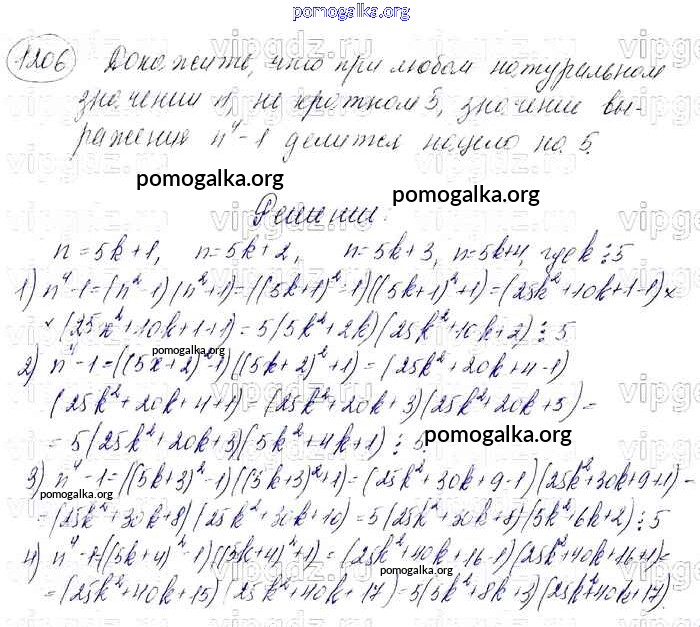 pomogalka.org
1206 Докажите, что при любом натуральном
значении n, не кратном 5, значение вы-
ражения n⁴-1 делится нацело на 5.
pomogalka.org
pomogalka.org
Решение:
n=5k+1, n=5k+2, n=5k+3, n=5k+4, где k⋮5
1) n⁴-1=(n²-1)(n²+1)=((5k+1)²-1)((5k+1)²+1)=(25k²+10k+1-1)×
×(25x²+10k+1+1)=5(5k²+2k)(25k²+10k+2)⋮5
pomogalka.org
2) n⁴-1=((5x+2)²-1)((5k+2)²+1)=(25k²+20k+4-1)
(25k²+20k+4+1)=(25k²+20k+3)(25k²+20k+5)=
=5(25k²+20k+3)(5k²+4k+1)⋮5.
pomogalka.org
3) n⁴-1=((5k+3)²-1)((5k+3)²+1)=(25k²+30k+9-1)(25k²+30k+9+1)=
pomogalka.org
=(25k²+30k+8)(25k²+30k+10)=5(25k²+30k+8)(5k²+6k+2)⋮5
4) n⁴-1=((5k+4)²-1)((5k+4)²+1)=(25k²+40k+16-1)(25k²+40k+16+1)=
pomogalka.org
=(25k²+40k+15)(25k²+40k+17)=5(5k²+8k+3)(25k²+40k+17)
pomogalka.org
vipgdz.ru